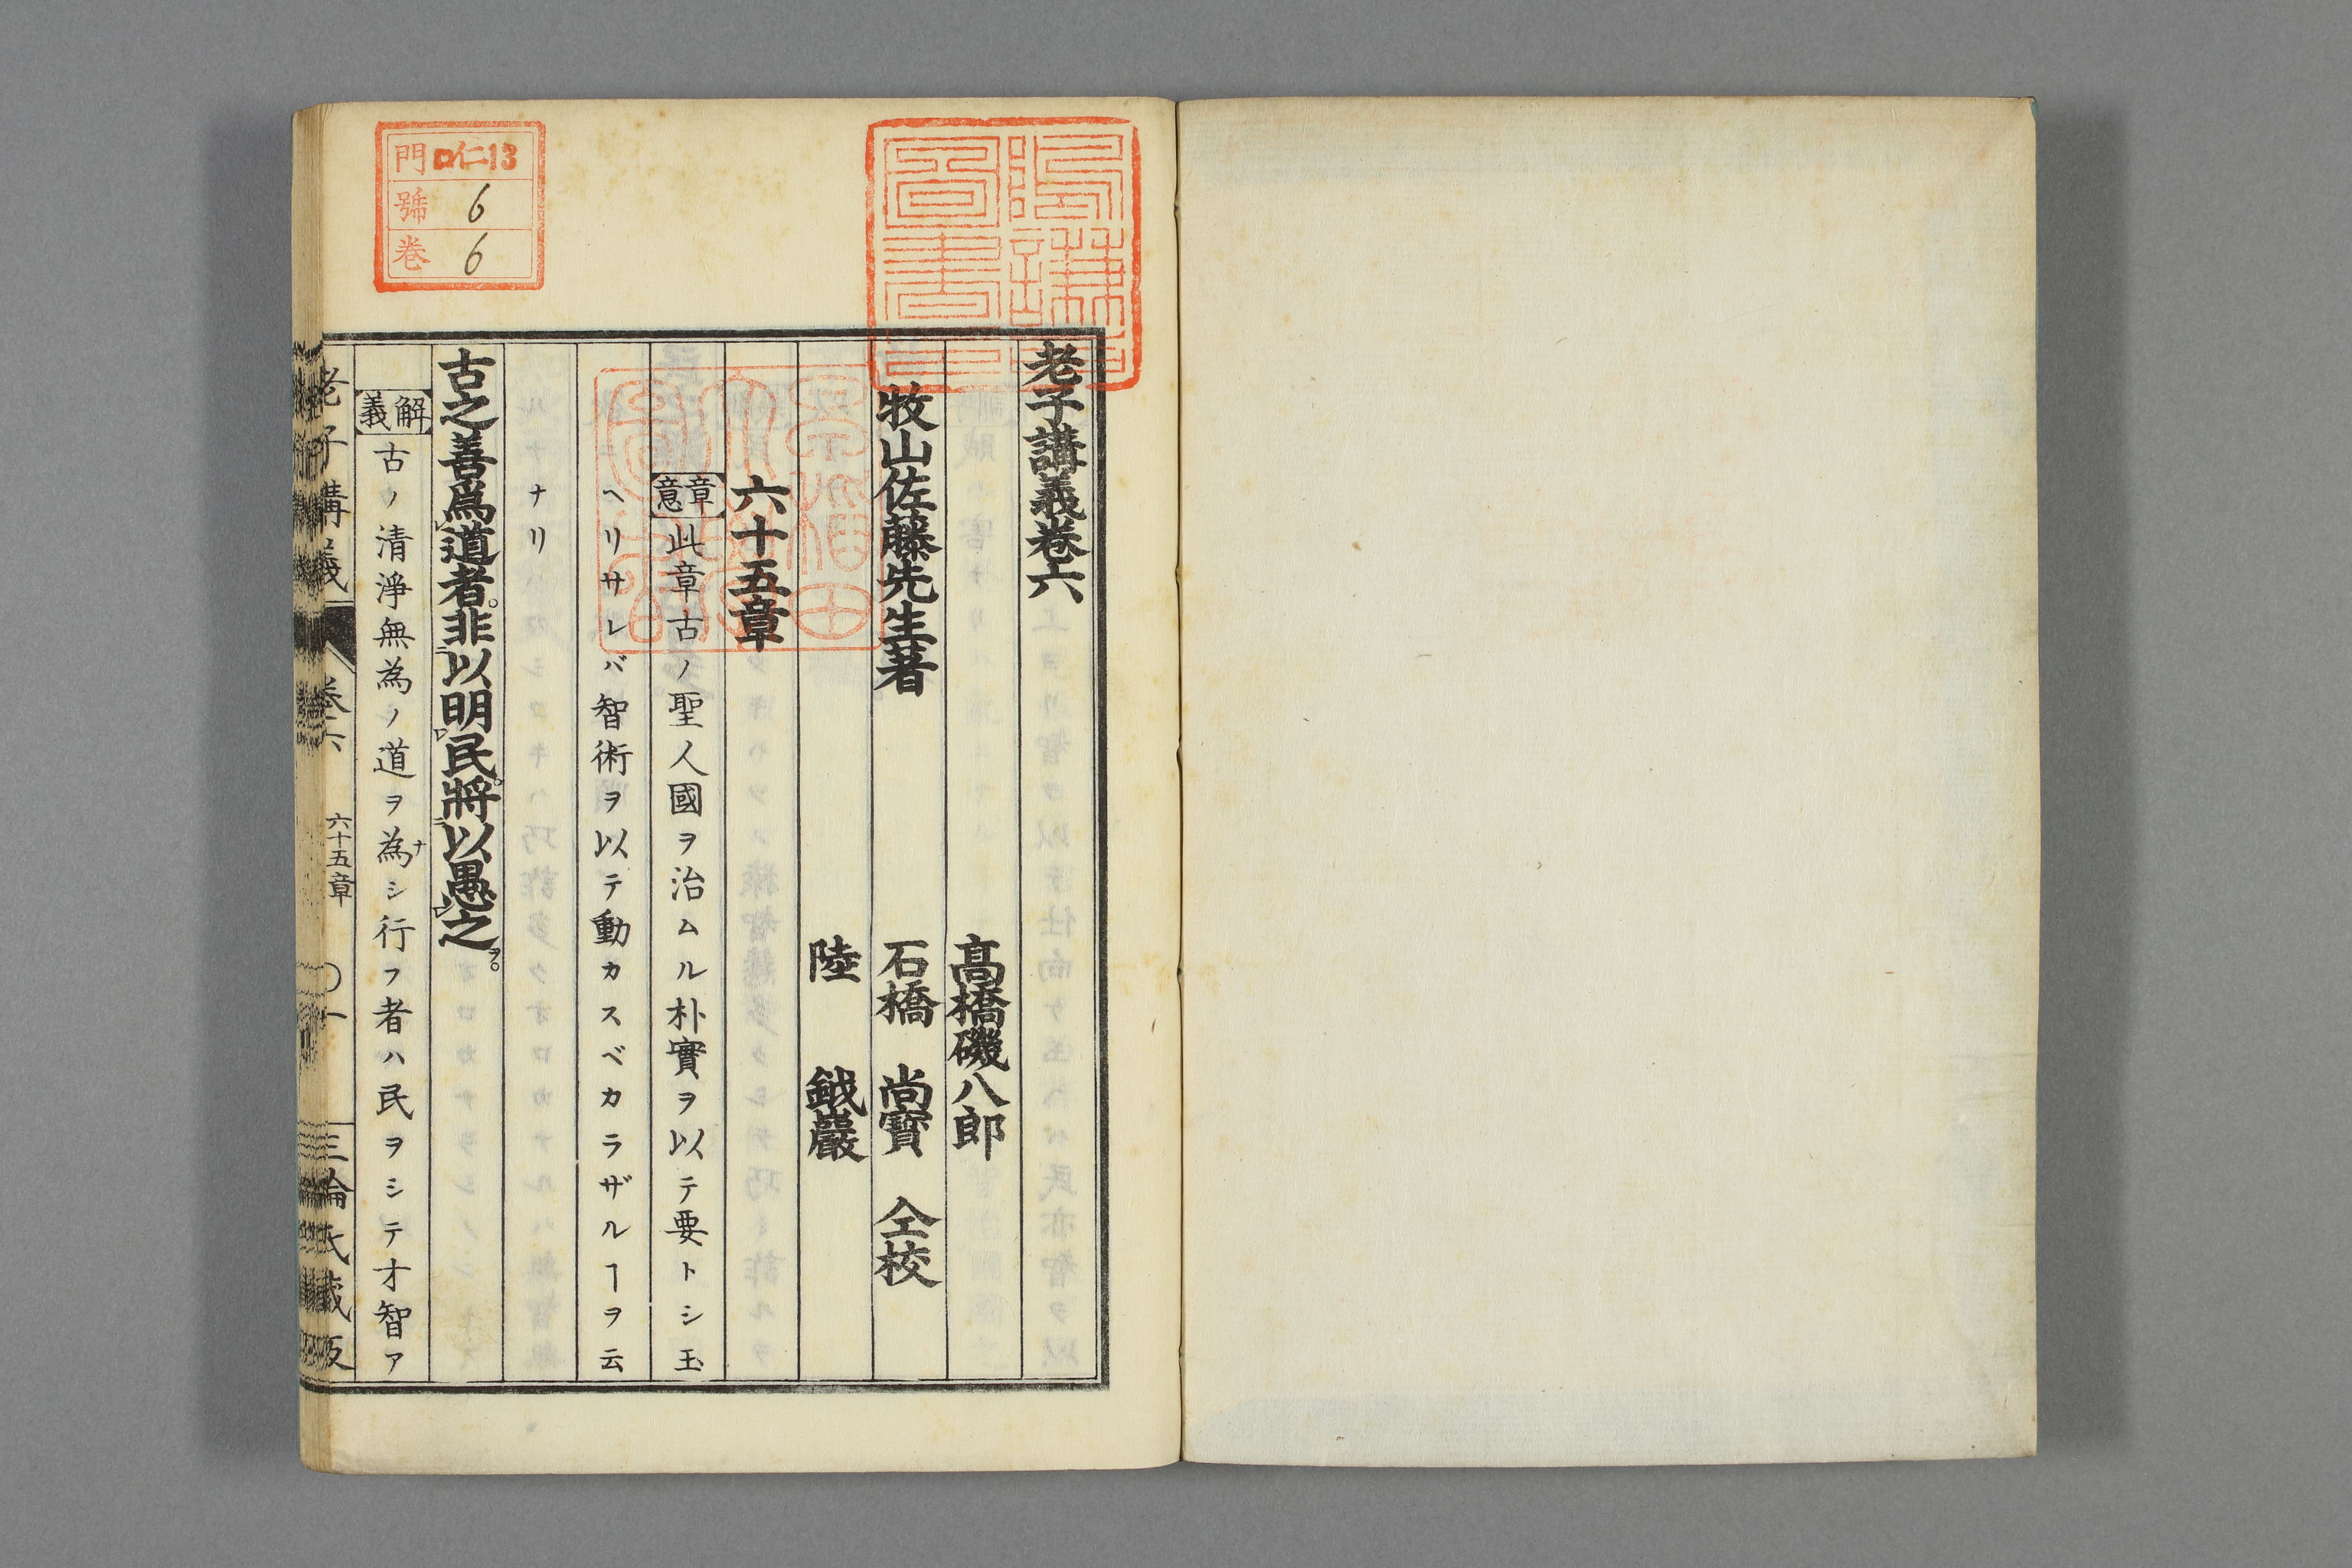 老子講義卷六
髙橋磯八郎
牧山佐藤先生著 石橋 尚寳 仝校
陸 鉞巖
六十五章
章意 此章古ノ聖人國ヲ治ムル朴實ヲ以テ要トシ玉
ヘリサレバ智術ヲ以テ動カスベカラザルヿヲ云
ナリ
古之善爲道者。非以明民。將以愚之。
解義 古ノ清淨無為ノ道ヲ為シ行フ者ハ民ヲシテ才智ア
老子講義 卷六 六十五章 〇一
門 ロ仁13
號 6
卷 6